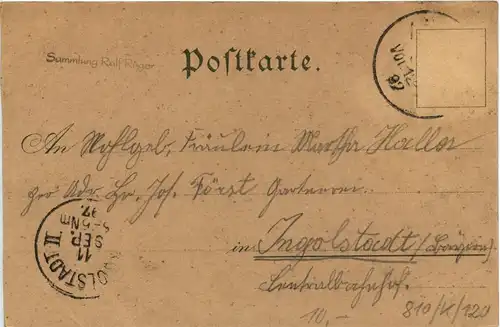 Sammlung Ralf Rüger
Postkarte.
An Wohlgeb. Fräulein Martha Haller
per Adr. Hr. Jos. Först Gärtnerei
in Ingolstadt (Bayern)
Centralbahnhof.
INGOLSTADT II
11
SEP.
4-5Nm
97.
10,-
810/K/120